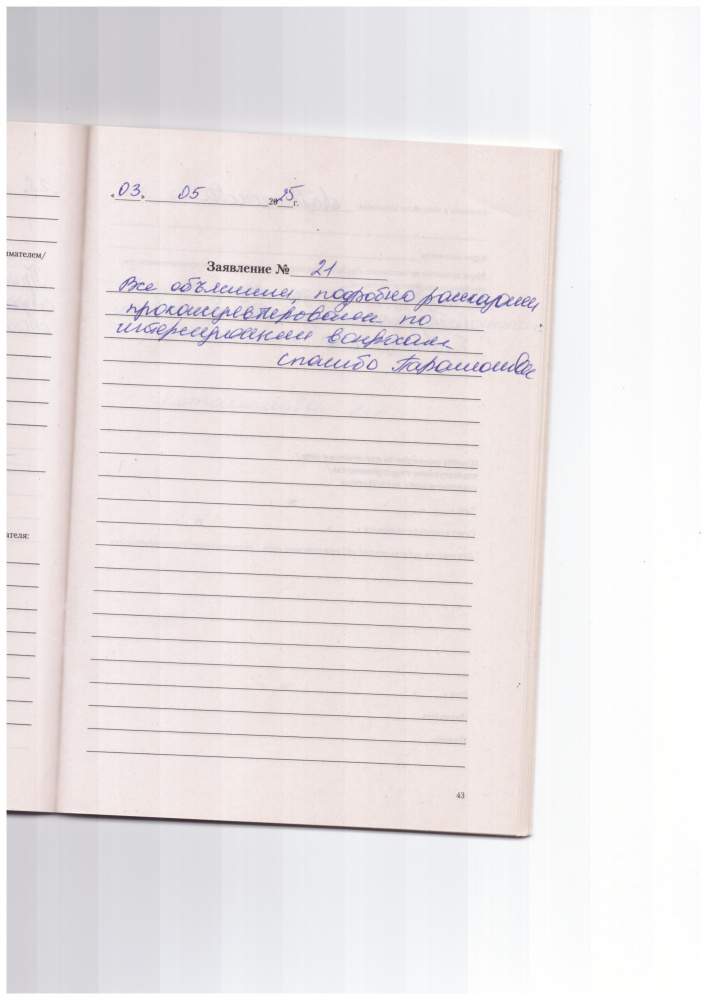 «03» 05 2025 г.
имателем/
Заявление № 21
Все объяснили, подробно рассказали
проконсультировали по
интересующим вопросам
спасибо
ателя:
43